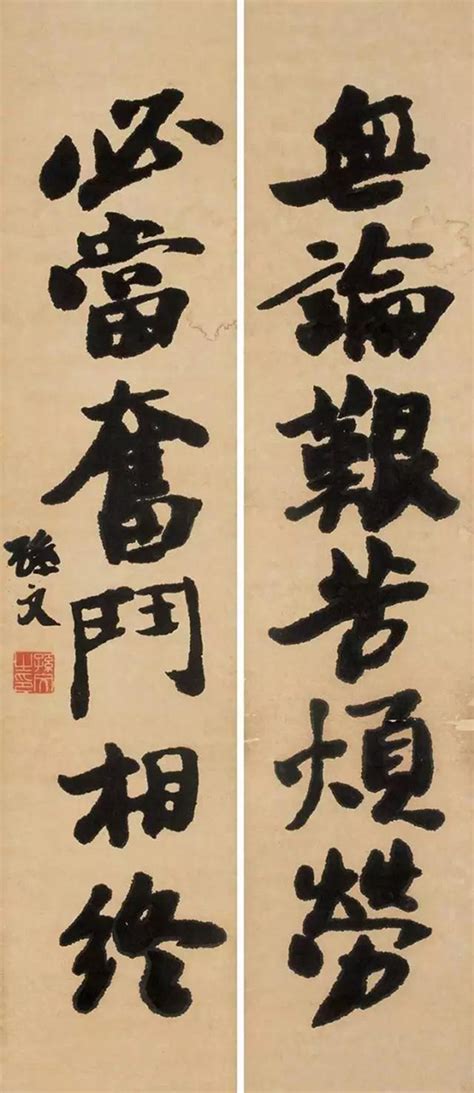 無論艱苦煩勞
必當奮鬥相終
孫文
孫文之印